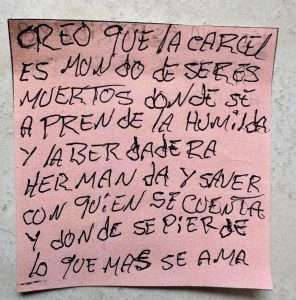 CREO QUE LA CARCEL
ES MONDO DE SERES
MUERTOS DONDE SE
APRENDE LA HUMILDA
Y LA BERDADERA
HERMANDA Y SAVER
CON QUIEN SE CUENTA
Y DONDE SE PIERDE
LO QUE MAS SE AMA